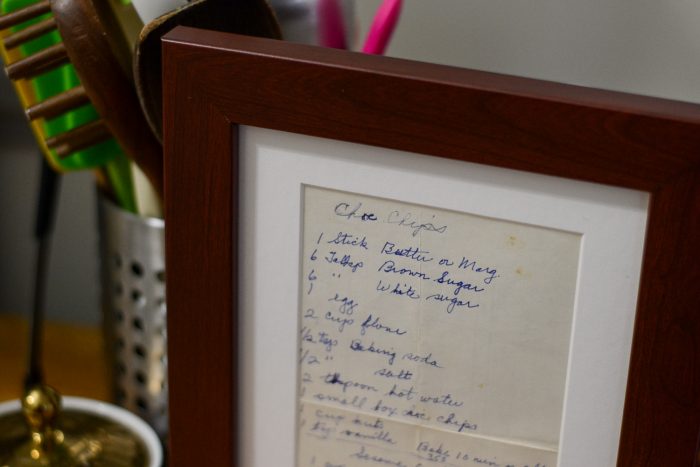 Choc Chip's
1 Stick Butter or Marg
6 Tablsp Brown Sugar
6 " White sugar
1 egg
2 cups flour
1/2 tsp Baking soda
1/2 " salt
2 teaspoon hot water
1 small box choc chips
1 cup nuts
1 tsp vanilla Bake 10 min
375
Sesame